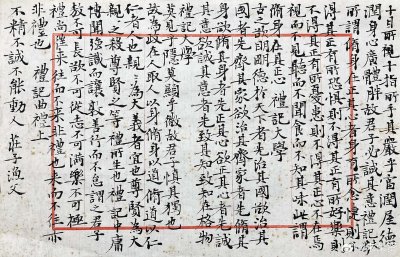 十目所視十指所手其嚴乎富潤屋德
潤身心廣體胖故君子必誠其意禮記大學
所謂脩身在正其心者身有所忿懥則
不得其正有所恐懼則不得其正有所好樂則
不得其正有所憂患則不得其正心不在焉
視而不見聽而不聞食而不知其味此謂
脩身在正其心 禮記大學
古之欲明明德於天下者先治其國欲治其
國者先齊其家欲治其齊家者先脩其
身欲脩其身者先正其心欲正其心者先誠
其意欲誠其意者先致其知致知在格物
禮記大學
莫見乎隱莫顯乎微故君子慎其獨也
故為政在人取人以身脩身以道脩道以仁
仁者人也親親為大義者宜也尊賢為大
親親之殺尊賢之等禮所生也禮記中庸
博聞強識而讓敦善行而不怠謂之君子
敖不可長欲不可從志不可滿樂不可極
禮尚往來往而不來非禮也來而不往亦
非禮也 禮記曲禮上
不精不誠不能動人 莊子漁父